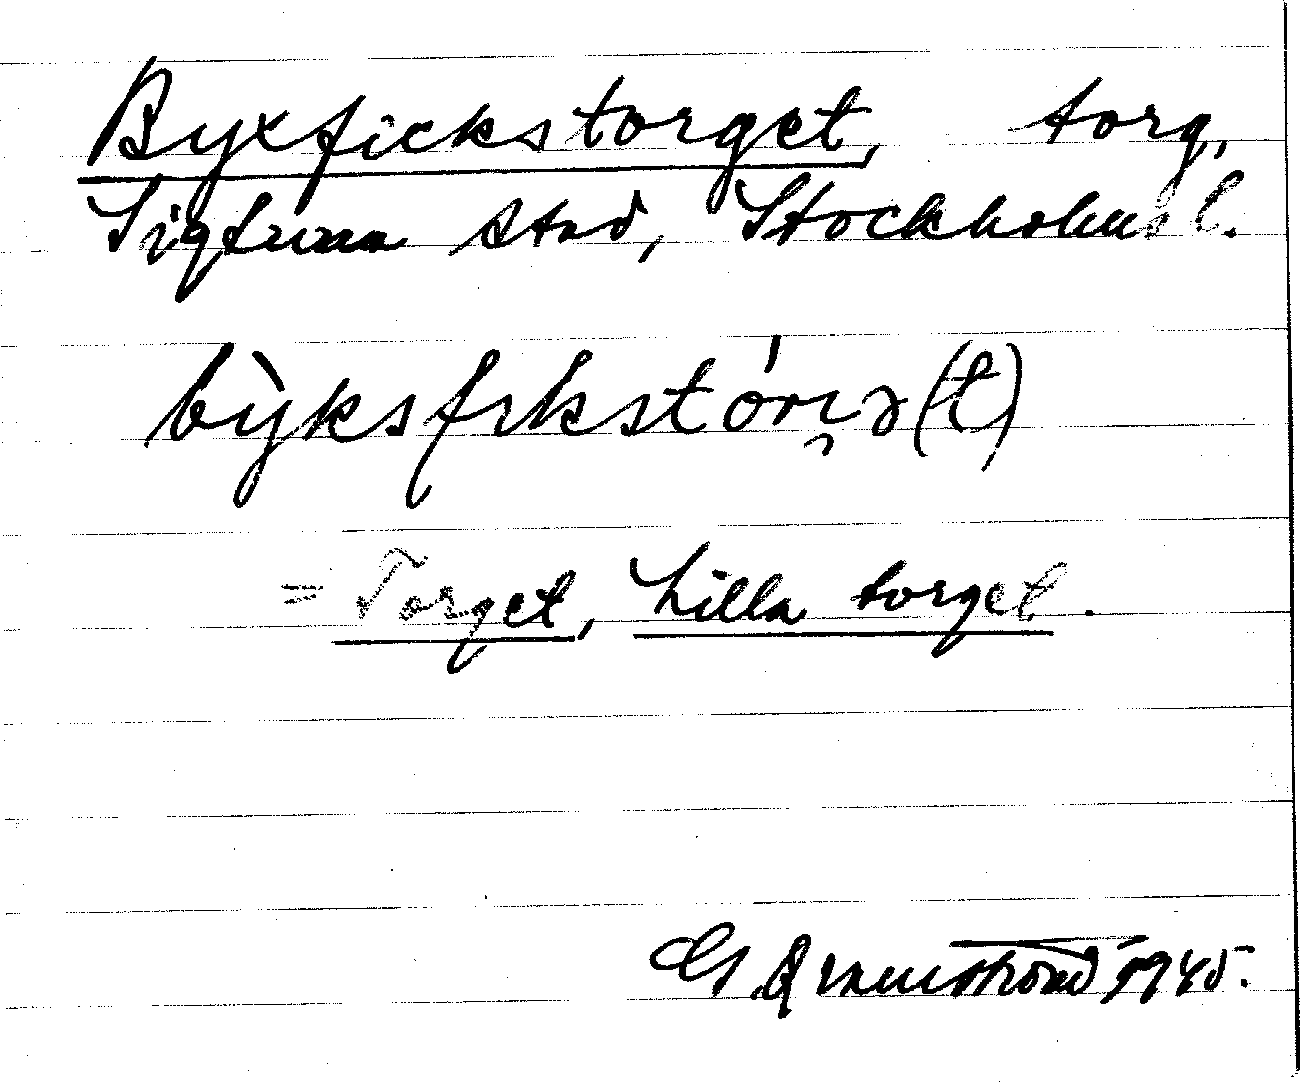 Byxfickstorget, torg,
Sigtuna stad, Stockholms l.
bỳksfıkstórı̨ə(t)
= Torget, Lilla torget.
1945.